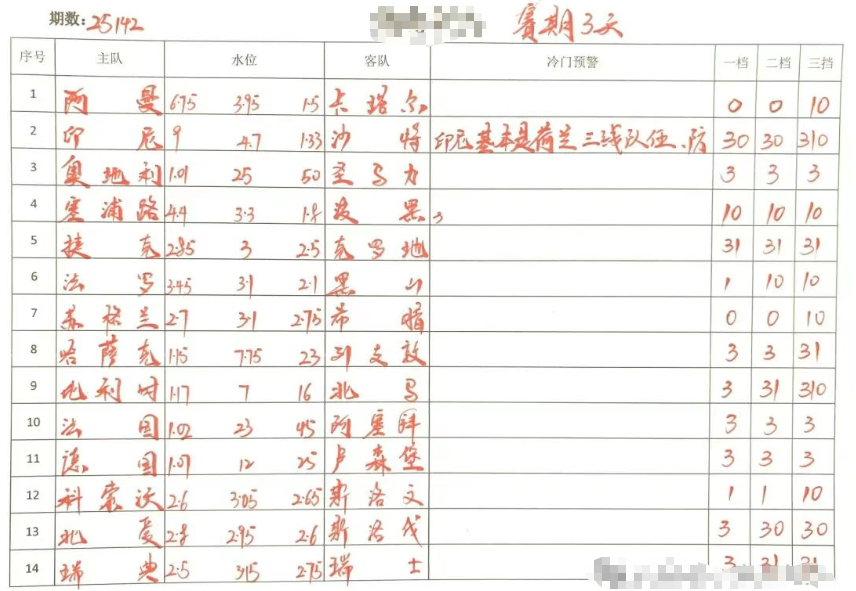 期数: 25142 赛期3天
序号 主队 水位 客队 冷门预警 一档 二档 三挡
1 阿曼 6.75 3.95 1.5 卡塔尔 0 0 10
2 印尼 9 4.7 1.33 沙特 印尼基本是荷兰三线队伍、防 30 30 310
3 奥地利 1.01 25 50 圣马力 3 3 3
4 塞浦路 4.4 3.3 1.8 波黑 10 10 10
5 捷克 2.85 3 2.5 克罗地 31 31 31
6 法罗 3.45 3.1 2.1 黑山 1 10 10
7 苏格兰 2.7 3.1 2.75 希腊 0 0 10
8 哈萨克 1.15 7.75 23 列支敦 3 3 31
9 比利时 1.17 7 16 北马 3 31 310
10 法国 1.02 23 45 阿塞拜 3 3 3
11 德国 1.07 12 25 卢森堡 3 3 3
12 科索沃 2.6 3.05 2.65 斯洛文 1 1 10
13 北爱 2.8 2.95 2.6 斯洛伐 3 30 30
14 瑞典 2.5 3.15 2.75 瑞士 3 31 31